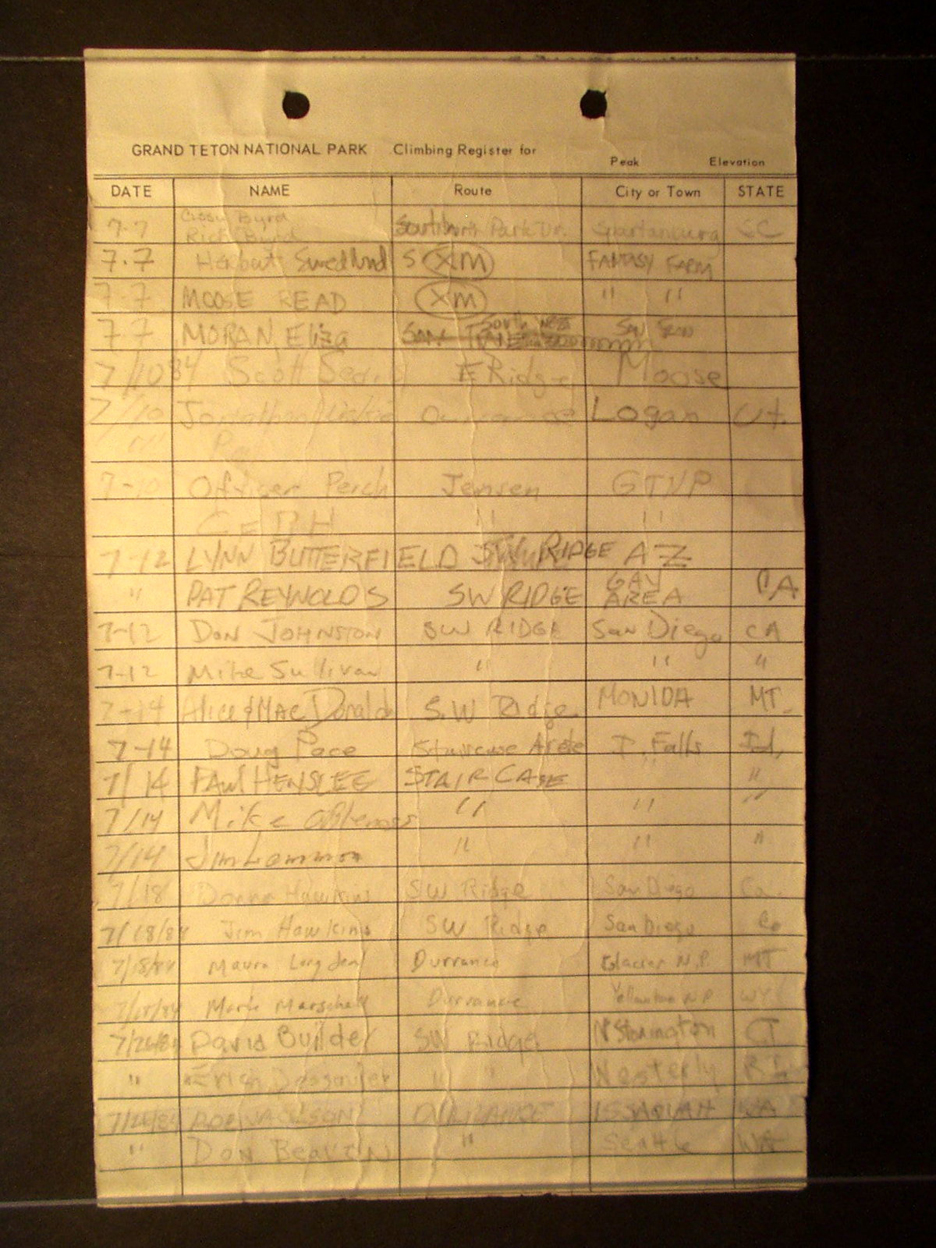 GRAND TETON NATIONAL PARK Climbing Register for
Peak Elevation
DATE NAME Route City or Town STATE
7-7 Byrd
Rick Byrd Park Dr. Spartanburg SC
7.7 Herbert Swedlund S XM FANTASY FARM
7-7 MOOSE READ XM " "
7-7 MORAN Eliza South
7/10 84 Scott E Ridge Moose
7/10 Jonathan Logan Ut.
"
7-10 Officer Perch Jensen GTNP
" "
7-12 LYNN BUTTERFIELD SW RIDGE AZ
" PAT REYNOLDS SW RIDGE GAY AREA CA
7-12 DON JOHNSTON SW RIDGE San Diego CA
7-12 Mike Sullivan " " "
7-14 Alice & Mac Donald S.W Ridge MONIDA MT.
7-14 Doug Pace Staircase Arete I. Falls Id.
7/14 PAUL HENSLEE STAIR CASE "
7/14 Mike " " "
7/14 Jim Lommon " " "
7/18 Donna Hawkins SW Ridge San Diego Ca.
7/18/84 Jim Hawkins SW Ridge San Diego Ca
7/18/84 Maura Longden Durrance Glacier N.P. MT
7/18/84 Mark Marschall Durrance Yellowstone N P WY
7/26/84 David Builder SW Ridge N Stonington CT
" Erich " " Westerly RI
7/26/84 ROB JACKSON DURRANCE ISSAQUAH WA
" DON BEAVIN " Seattle WA